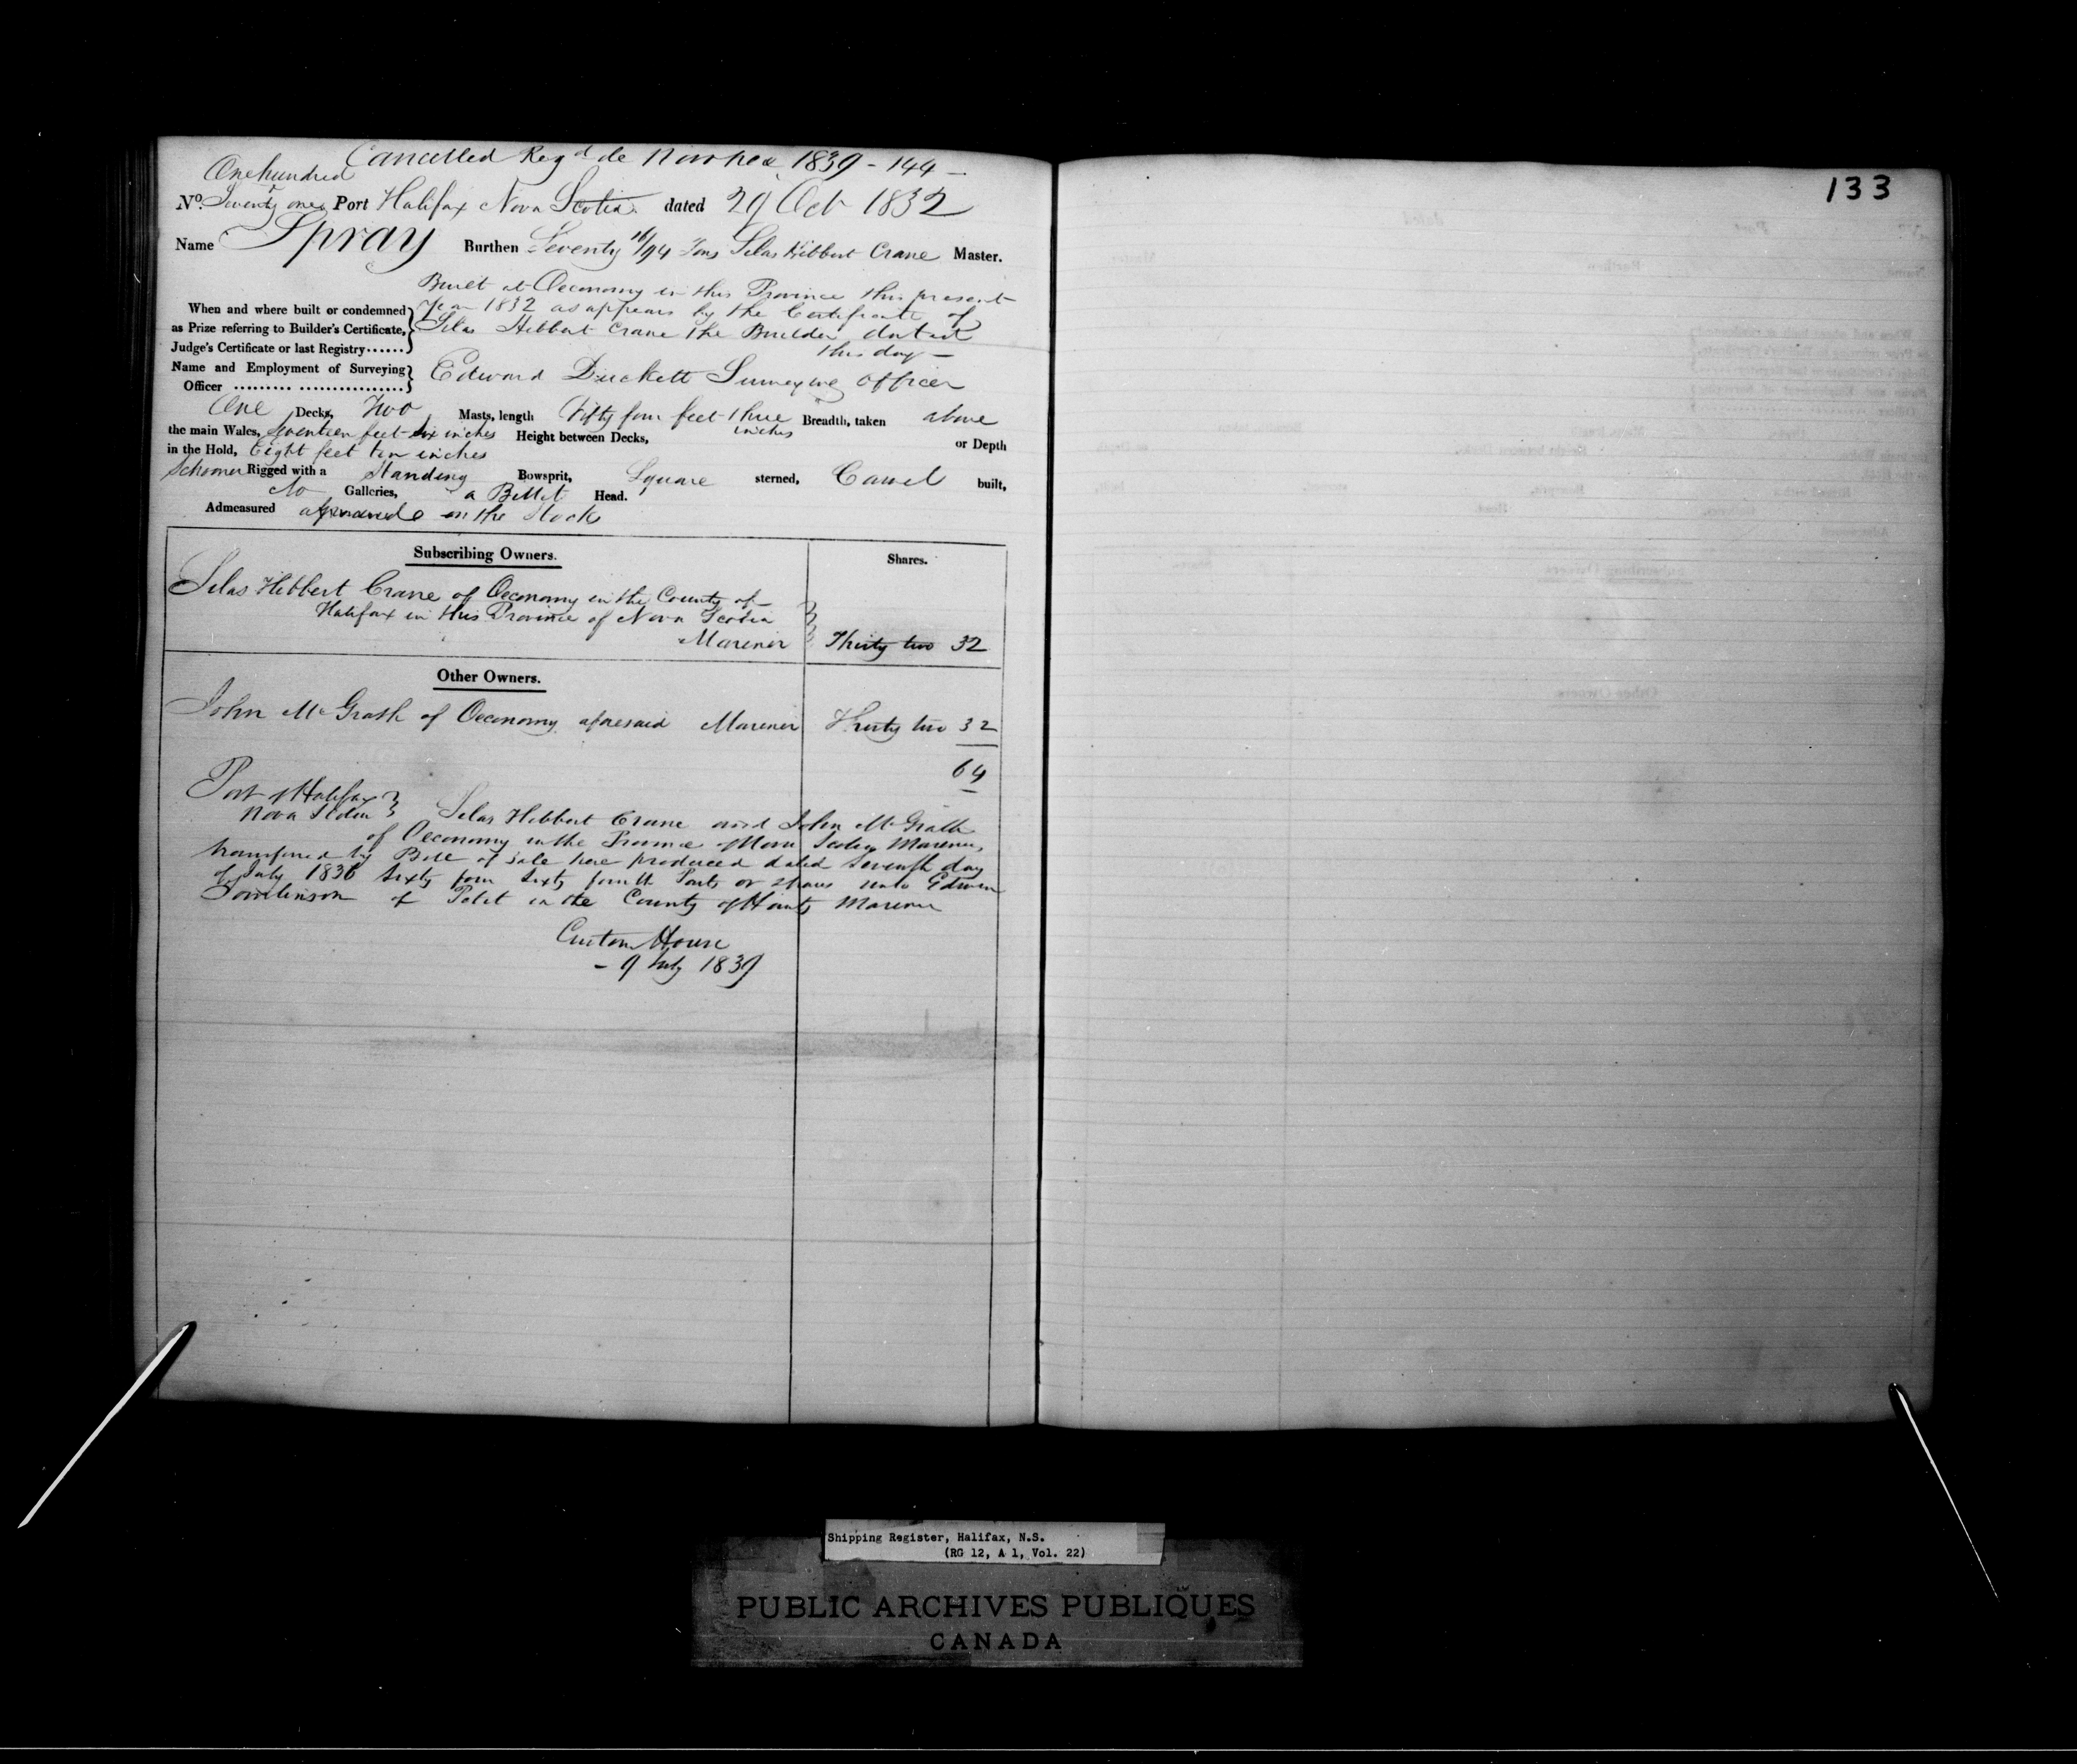 Cancelled Reg^d de Novo here 1839 - 144 -
One hundred
No. Seventy one Port Halifax Nova Scotia dated 29 Oct 1832
Name Spray Burthen Seventy 16/94 Tons Silas Hibbert Crane Master.
Built at Oeconomy in this Province this present
When and where built or condemned year 1832 as appears by the Certificate of
as Prize referring to Builder's Certificate, Silas Hibbert Crane the Builder dated
Judge's Certificate or last Registry...... this day -
Name and Employment of Surveying
Officer Edward Duckett Surveying Officer
One Decks, Two Masts, length Fifty four feet three inches Breadth, taken above
the main Wales, Seventeen feet six inches Height between Decks, or Depth
in the Hold, Eight feet ten inches
Schooner Rigged with a Standing Bowsprit, Square sterned, Carvel built,
No Galleries, a Billet Head.
Admeasured on the Stocks
Subscribing Owners. Shares.
Silas Hibbert Crane of Oeconomy in the County of
Halifax in this Province of Nova Scotia
Marener Thirty two 32
Other Owners.
John McGrath of Oeconomy aforesaid Marener Thirty two 32
64
Port of Halifax
Nova Scotia Silas Hibbert Crane and John McGrath
of Oeconomy in the Province of Nova Scotia Mareners,
transferred by Bill of Sale here produced dated Seventh day
of July 1836 Sixty four Sixty fourth Parts or shares unto Edwin
Tomlinson of in the County of Hants Marener
Custom House
- 9 July 1839
133
Shipping Register, Halifax, N.S.
(RG 12, A 1, Vol. 22)
PUBLIC ARCHIVES PUBLIQUES
CANADA